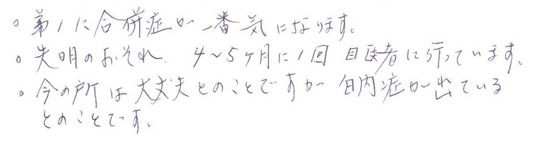 ○ 第1に合併症が一番気になります。
○ 失明のおそれ 4〜5ヶ月に1回 目医者に行っています。
○ 今の所は大丈夫とのことですが 白内症が出ている
とのことです。